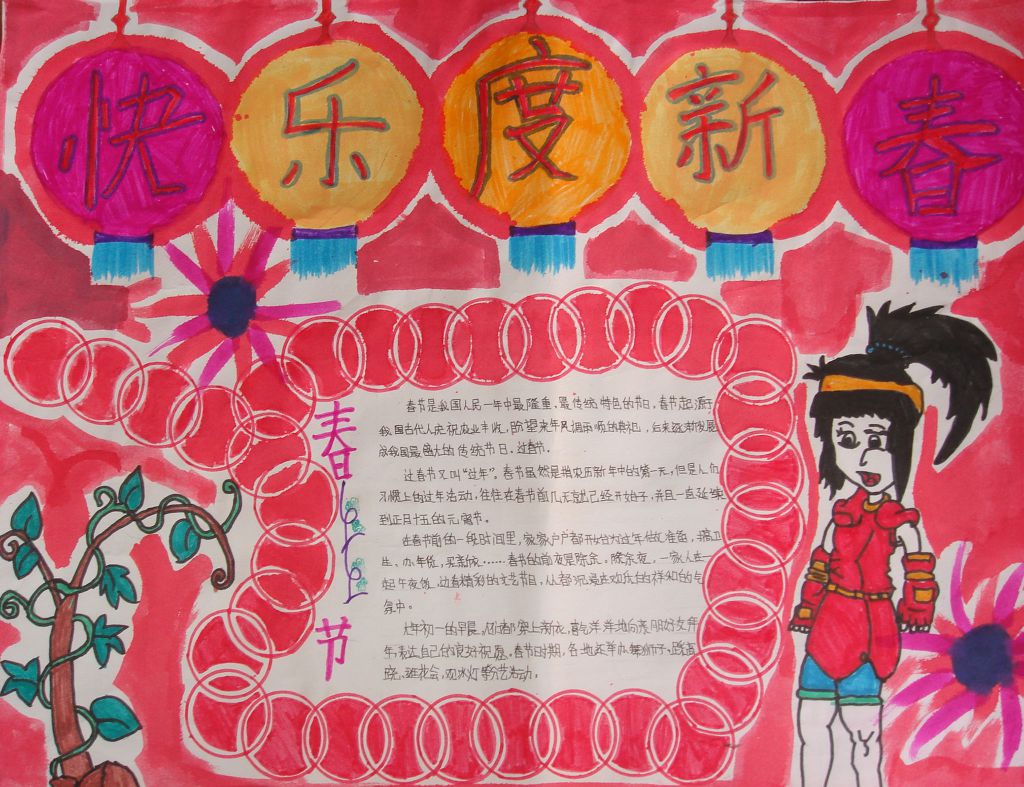 快乐度新春
春节
春节是我国人民一年中最隆重、最传统特色的节日，春节起源于
我国古代人庆祝农业丰收，盼望来年风调雨顺的典礼，后来逐渐发展
成我国最盛大的传统节日，过春节。
过春节又叫“过年”。春节虽然是指农历新年中的第一天，但是人们
习惯上的过年活动，往往在春节前几天就已经开始了，并且一直延续
到正月十五的元宵节。
在春节前的一段时间里，家家户户都开始为过年做准备，搞卫
生、办年货，买新衣……春节的前夜是除夕，除夕夜，一家人在一
起午夜饭，边看精彩的文艺节目，从都沉浸在欢乐的祥和的气
氛中。
大年初一的早晨，人们都穿上新衣，喜气洋洋地向亲朋好友拜
年，表达自己的良好祝愿，春节时期，各地还举办舞狮子、
会，观冰灯等活动。